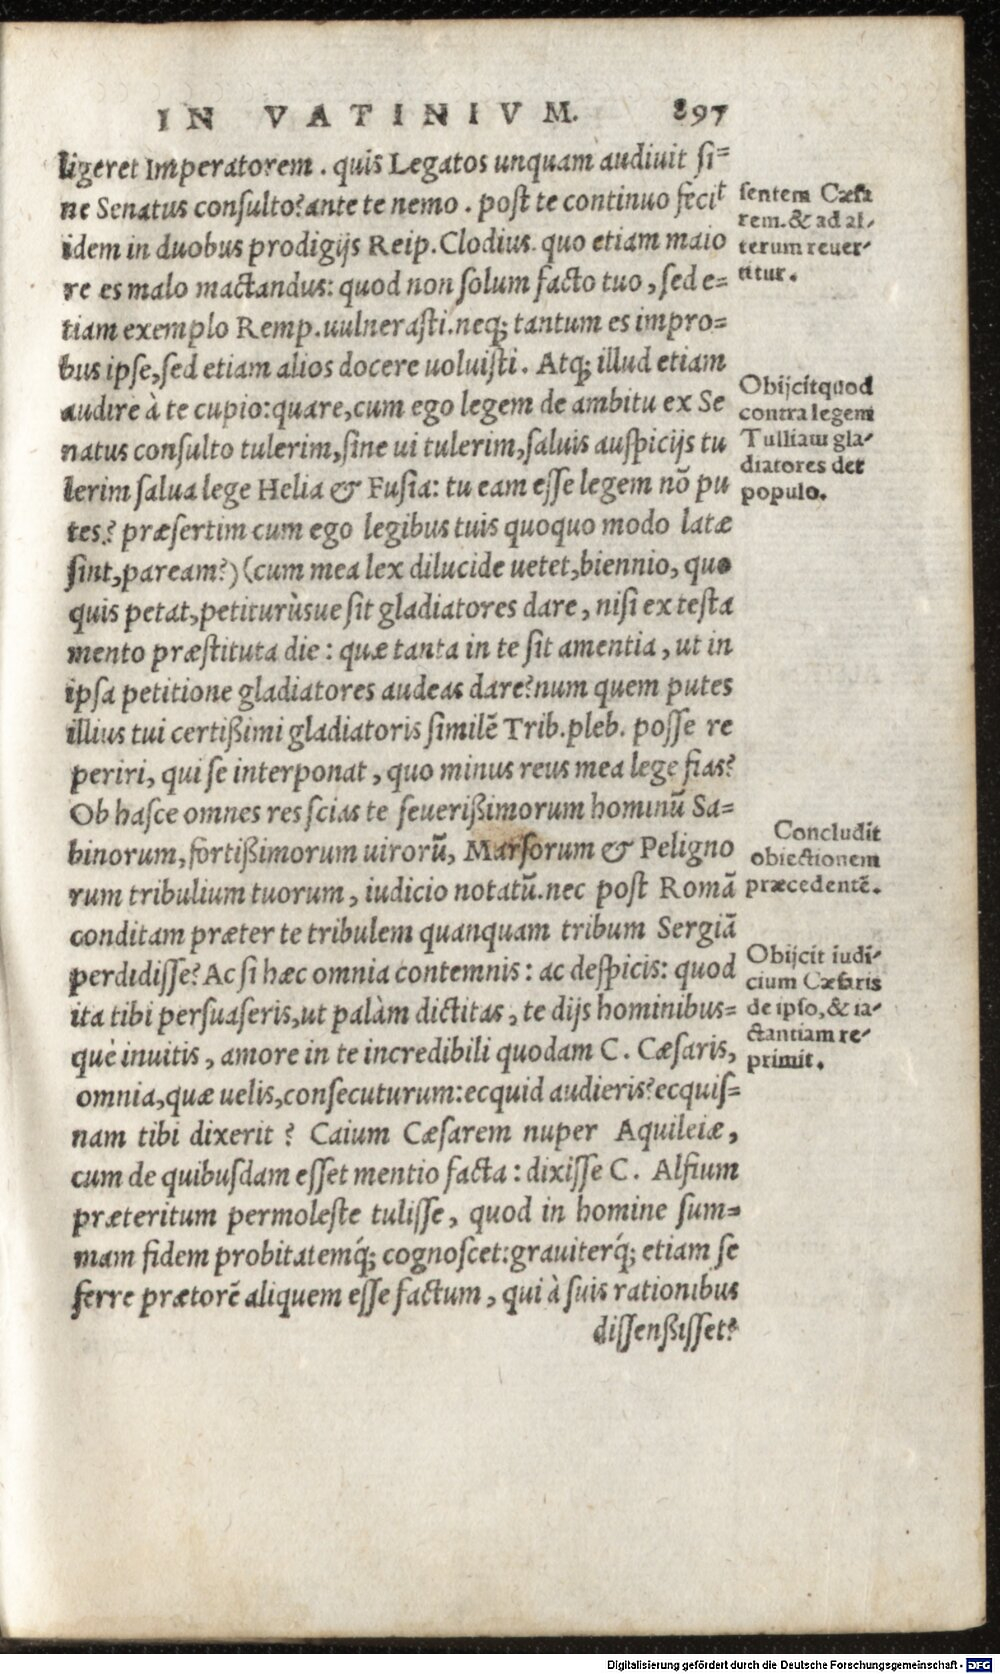 IN VATINIVM. 897
ligeret Imperatorem. quis Legatos unquam audiuit si=
ne Senatus consulto? ante te nemo. post te continuo fecit
idem in duobus prodigijs Reip. Clodius. quo etiam maio
re es malo mactandus: quod non solum facto tuo, sed e=
tiam exemplo Remp. uulnerasti. neq; tantum es impro=
bus ipse, sed etiam alios docere uoluisti. Atq; illud etiam
audire à te cupio: quare, cum ego legem de ambitu ex Se
natus consulto tulerim, sine ui tulerim, saluis auspicijs tu
lerim salua lege Helia & Fusia: tu eam esse legem nõ pu
tes? præsertim cum ego legibus tuis quoquo modo latæ
sint, paream?) (cum mea lex dilucide uetet, biennio, quo
quis petat, petiturùsue sit gladiatores dare, nisi ex testa
mento præstituta die: quæ tanta in te sit amentia, ut in
ipsa petitione gladiatores audeas dare? num quem putes
illius tui certißimi gladiatoris similẽ Trib. pleb. posse re
periri, qui se interponat, quo minus reus mea lege fias?
Ob hasce omnes res scias te seuerißimorum hominũ Sa=
binorum, fortißimorum uirorũ, Marsorum & Peligno
rum tribulium tuorum, iudicio notatũ. nec post Romã
conditam præter te tribulem quanquam tribum Sergiã
perdidisse? Ac si hæc omnia contemnis: ac despicis: quod
ita tibi persuaseris, ut palàm dictitas, te dijs hominibus=
què inuitis, amore in te incredibili quodam C. Cæsaris,
omnia, quæ uelis, consecuturum: ecquid audieris? ecquis=
nam tibi dixerit? Caium Cæsarem nuper Aquileiæ,
cum de quibusdam esset mentio facta: dixisse C. Alfium
præteritum permoleste tulisse, quod in homine sum=
mam fidem probitatemq́; cognoscet: grauiterq́; etiam se
ferre prætorẽ aliquem esse factum, qui à suis rationibus
dissenßisset?
sentem Cæsa
rem. & ad al-
terum reuer-
titur.
Obijcit quod
contra legem
Tulliam gla-
diatores det
populo.
Concludit
obiectionem
præcedentẽ.
Obijcit iudi-
cium Cæsaris
de ipso, & ia-
ctantiam re-
primit.
Digitalisierung gefördert durch die Deutsche Forschungsgemeinschaft - DFG